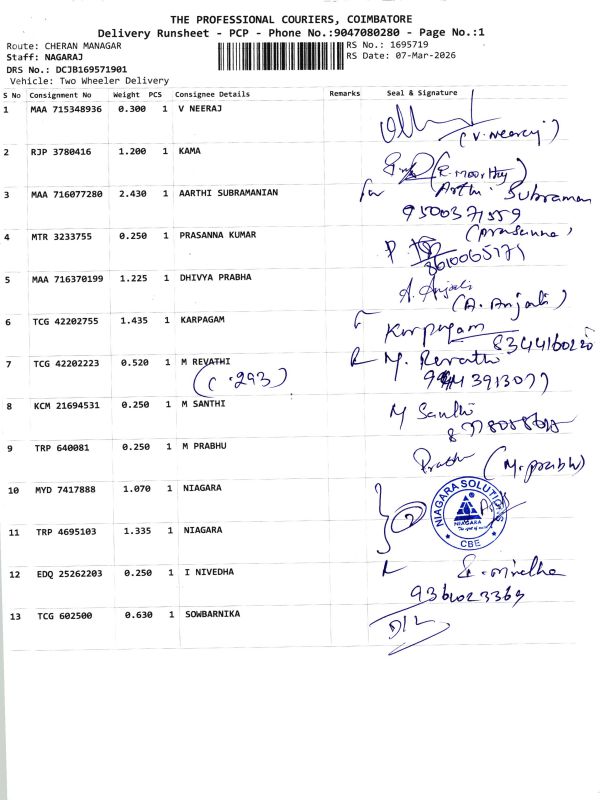 THE PROFESSIONAL COURIERS, COIMBATORE
Delivery Runsheet - PCP - Phone No.:9047080280 - Page No.:1
Route: CHERAN MANAGAR
RS No.: 1695719
Staff: NAGARAJ
RS Date: 07-Mar-2026
DRS No.: DCJB169571901
Vehicle: Two Wheeler Delivery
S No Consignment No Weight PCS Consignee Details Remarks Seal & Signature
1 MAA 715348936 0.300 1 V NEERAJ
(V. Neeraj)
2 RJP 3780416 1.200 1 KAMA
(E. Moorthy)
3 MAA 716077280 2.430 1 AARTHI SUBRAMANIAN
for Arthi Subraman
9500371559
4 MTR 3233755 0.250 1 PRASANNA KUMAR
(Prasanna)
5 MAA 716370199 1.225 1 DHIVYA PRABHA
A. Anjali
(A. Anjali)
6 TCG 42202755 1.435 1 KARPAGAM
Karpagam
7 TCG 42202223 0.520 1 M REVATHI
M. Revathi
(C. 293)
8 KCM 21694531 0.250 1 M SANTHI
M Santhi
9 TRP 640081 0.250 1 M PRABHU
Prabhu (M. prabhu)
10 MYD 7417888 1.070 1 NIAGARA
NIAGARA SOLUTIONS
NIAGARA
CBE
11 TRP 4695103 1.335 1 NIAGARA
12 EDQ 25262203 0.250 1 I NIVEDHA
nivedha
9361023369
13 TCG 602500 0.630 1 SOWBARNIKA
D/L